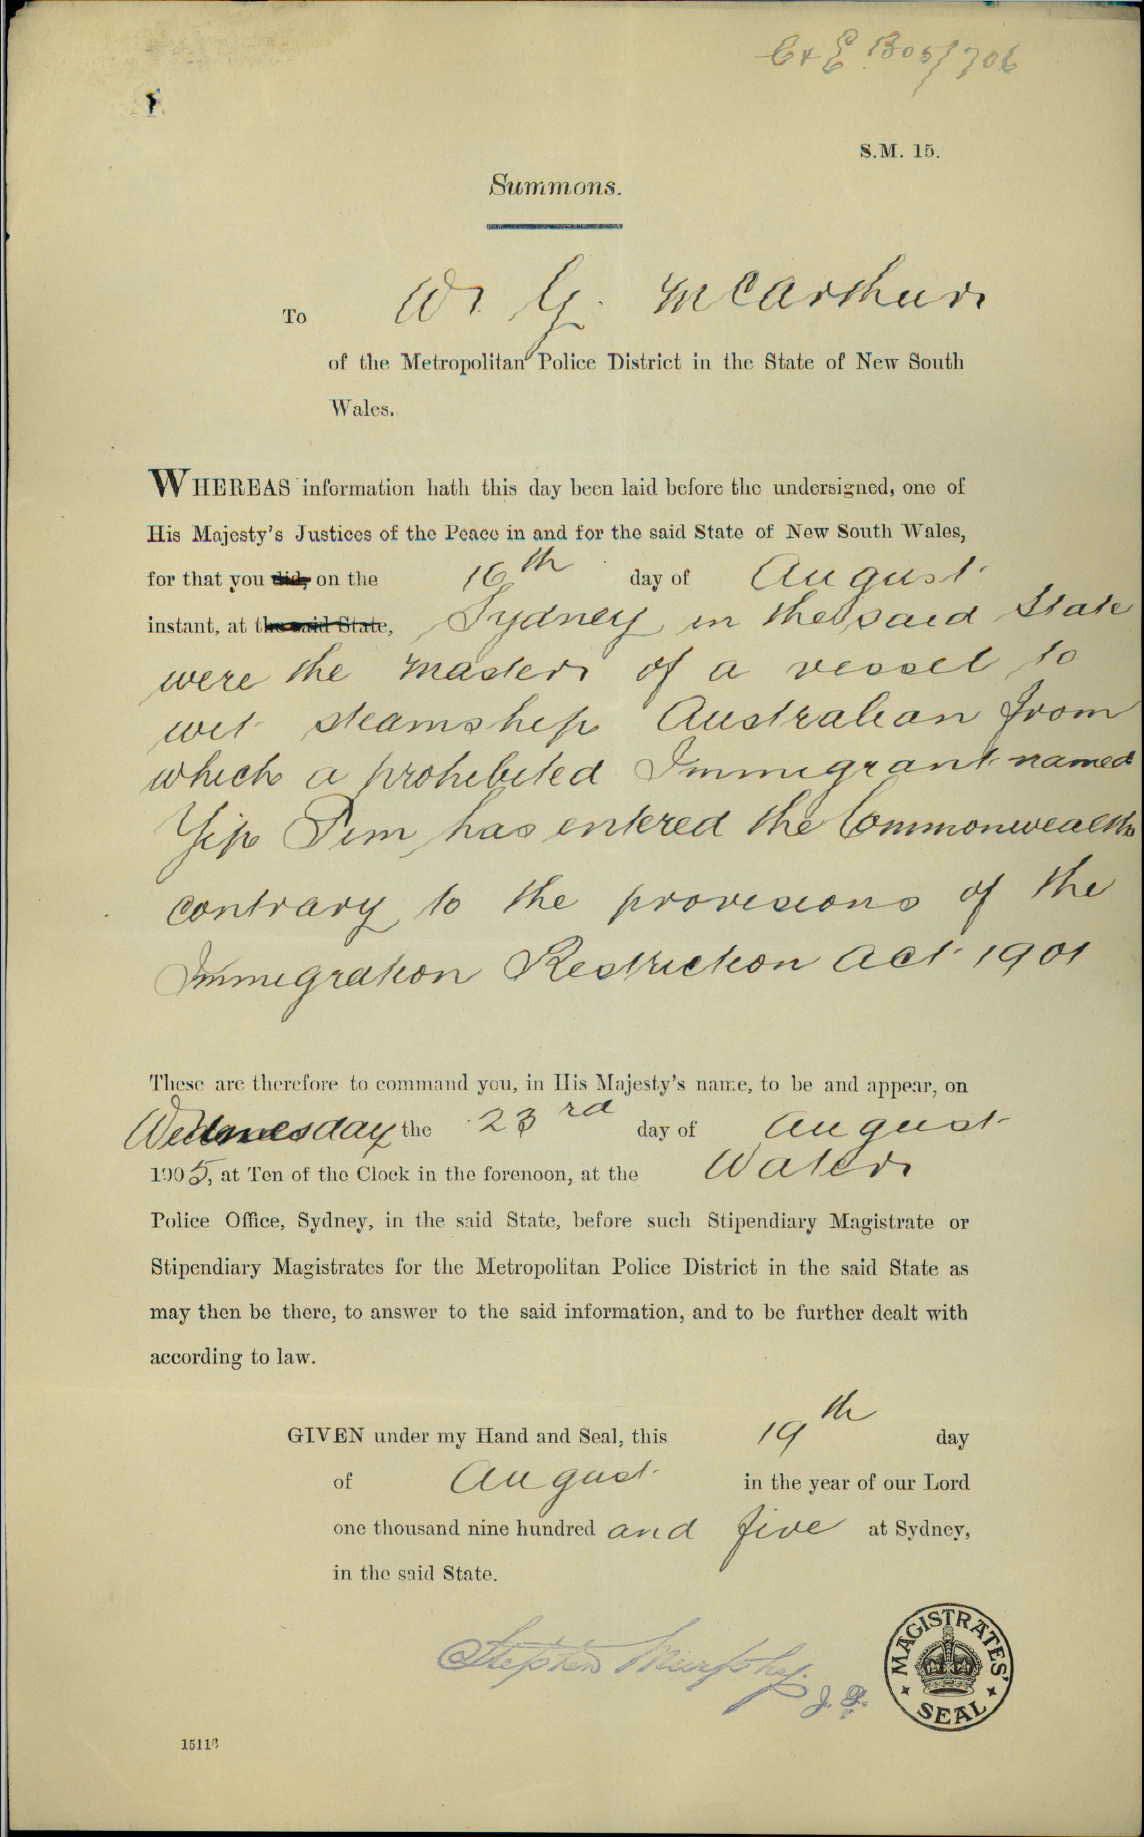 C & E 1305/706
S.M. 15.
Summons.
To W. G. McArthur
of the Metropolitan Police District in the State of New South
Wales.
WHEREAS information hath this day been laid before the undersigned, one of
His Majesty's Justices of the Peace in and for the said State of New South Wales,
for that you did, on the 16th day of August
instant, at the said State, Sydney in the said State
were the master of a vessel to
wit steamship Australian from
which a prohibited Immigrant named
Yip Pim has entered the Commonwealth
contrary to the provisions of the
Immigration Restriction Act 1901
These are therefore to command you, in His Majesty's name, to be and appear, on
Wednesday the 23rd day of August
1905, at Ten of the Clock in the forenoon, at the Water
Police Office, Sydney, in the said State, before such Stipendiary Magistrate or
Stipendiary Magistrates for the Metropolitan Police District in the said State as
may then be there, to answer to the said information, and to be further dealt with
according to law.
GIVEN under my Hand and Seal, this 19th day
of August in the year of our Lord
one thousand nine hundred and five at Sydney,
in the said State.
Stephen Murphy.
J.P.
MAGISTRATES' SEAL
15113